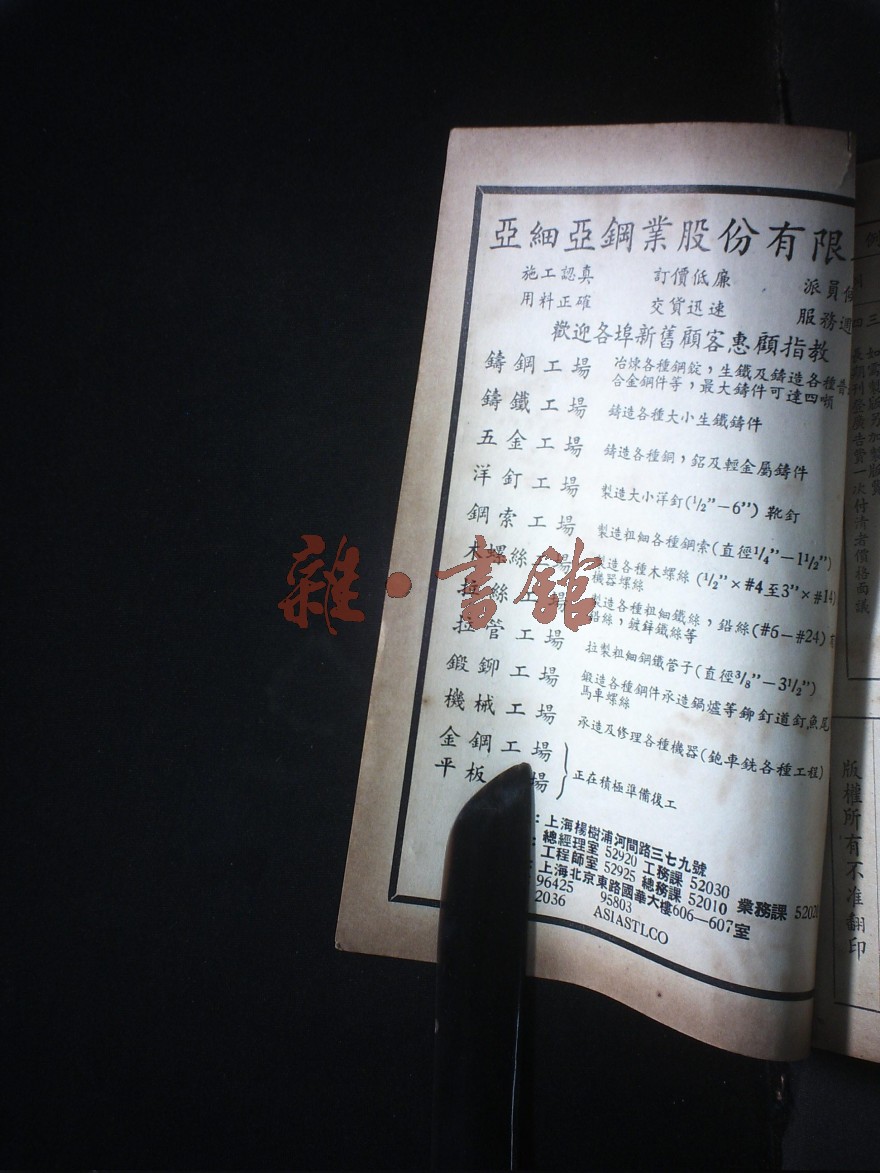 亞細亞鋼業股份有限
施工認真 訂價低廉 派員
用料正確 交貨迅速 服務週
歡迎各埠新舊顧客惠顧指教
鑄鋼工場 冶煉各種鋼錠，生鐵及鑄造各種普
合金鋼件等，最大鑄件可達四噸
鑄鐵工場 鑄造各種大小生鐵鑄件
五金工場 鑄造各種銅，鋁及輕金屬鑄件
洋釘工場 製造大小洋釘(1/2"—6") 靴釘
鋼索工場 製造粗細各種鋼索(直徑1/4"—1 1/2")
木螺絲工場 製造各種木螺絲 (1/2"×#4至3"×#14)
機器螺絲
拉絲工場 製造各種粗細鐵絲，鉛絲(#6—#24)
鉛絲，鍍鋅鐵絲等
拉管工場 拉製粗細鋼鐵管子(直徑3/8"—3 1/2")
鍛鉚工場 鍛造各種鋼件承造鍋爐等鉚釘道釘,魚尾
馬車螺絲
機械工場 承造及修理各種機器(鉋車銑各種工程)
金鋼工場
平板 場 正在積極準備復工
：上海楊樹浦河間路三七九號
：總經理室 52920 工務課 52030 業務課 5202
工程師室 52925 總務課 52010
：上海北京東路國華大樓606—607室
96425 95803
2036 ASIASTLCO
版權所有不准翻印
雜·書館